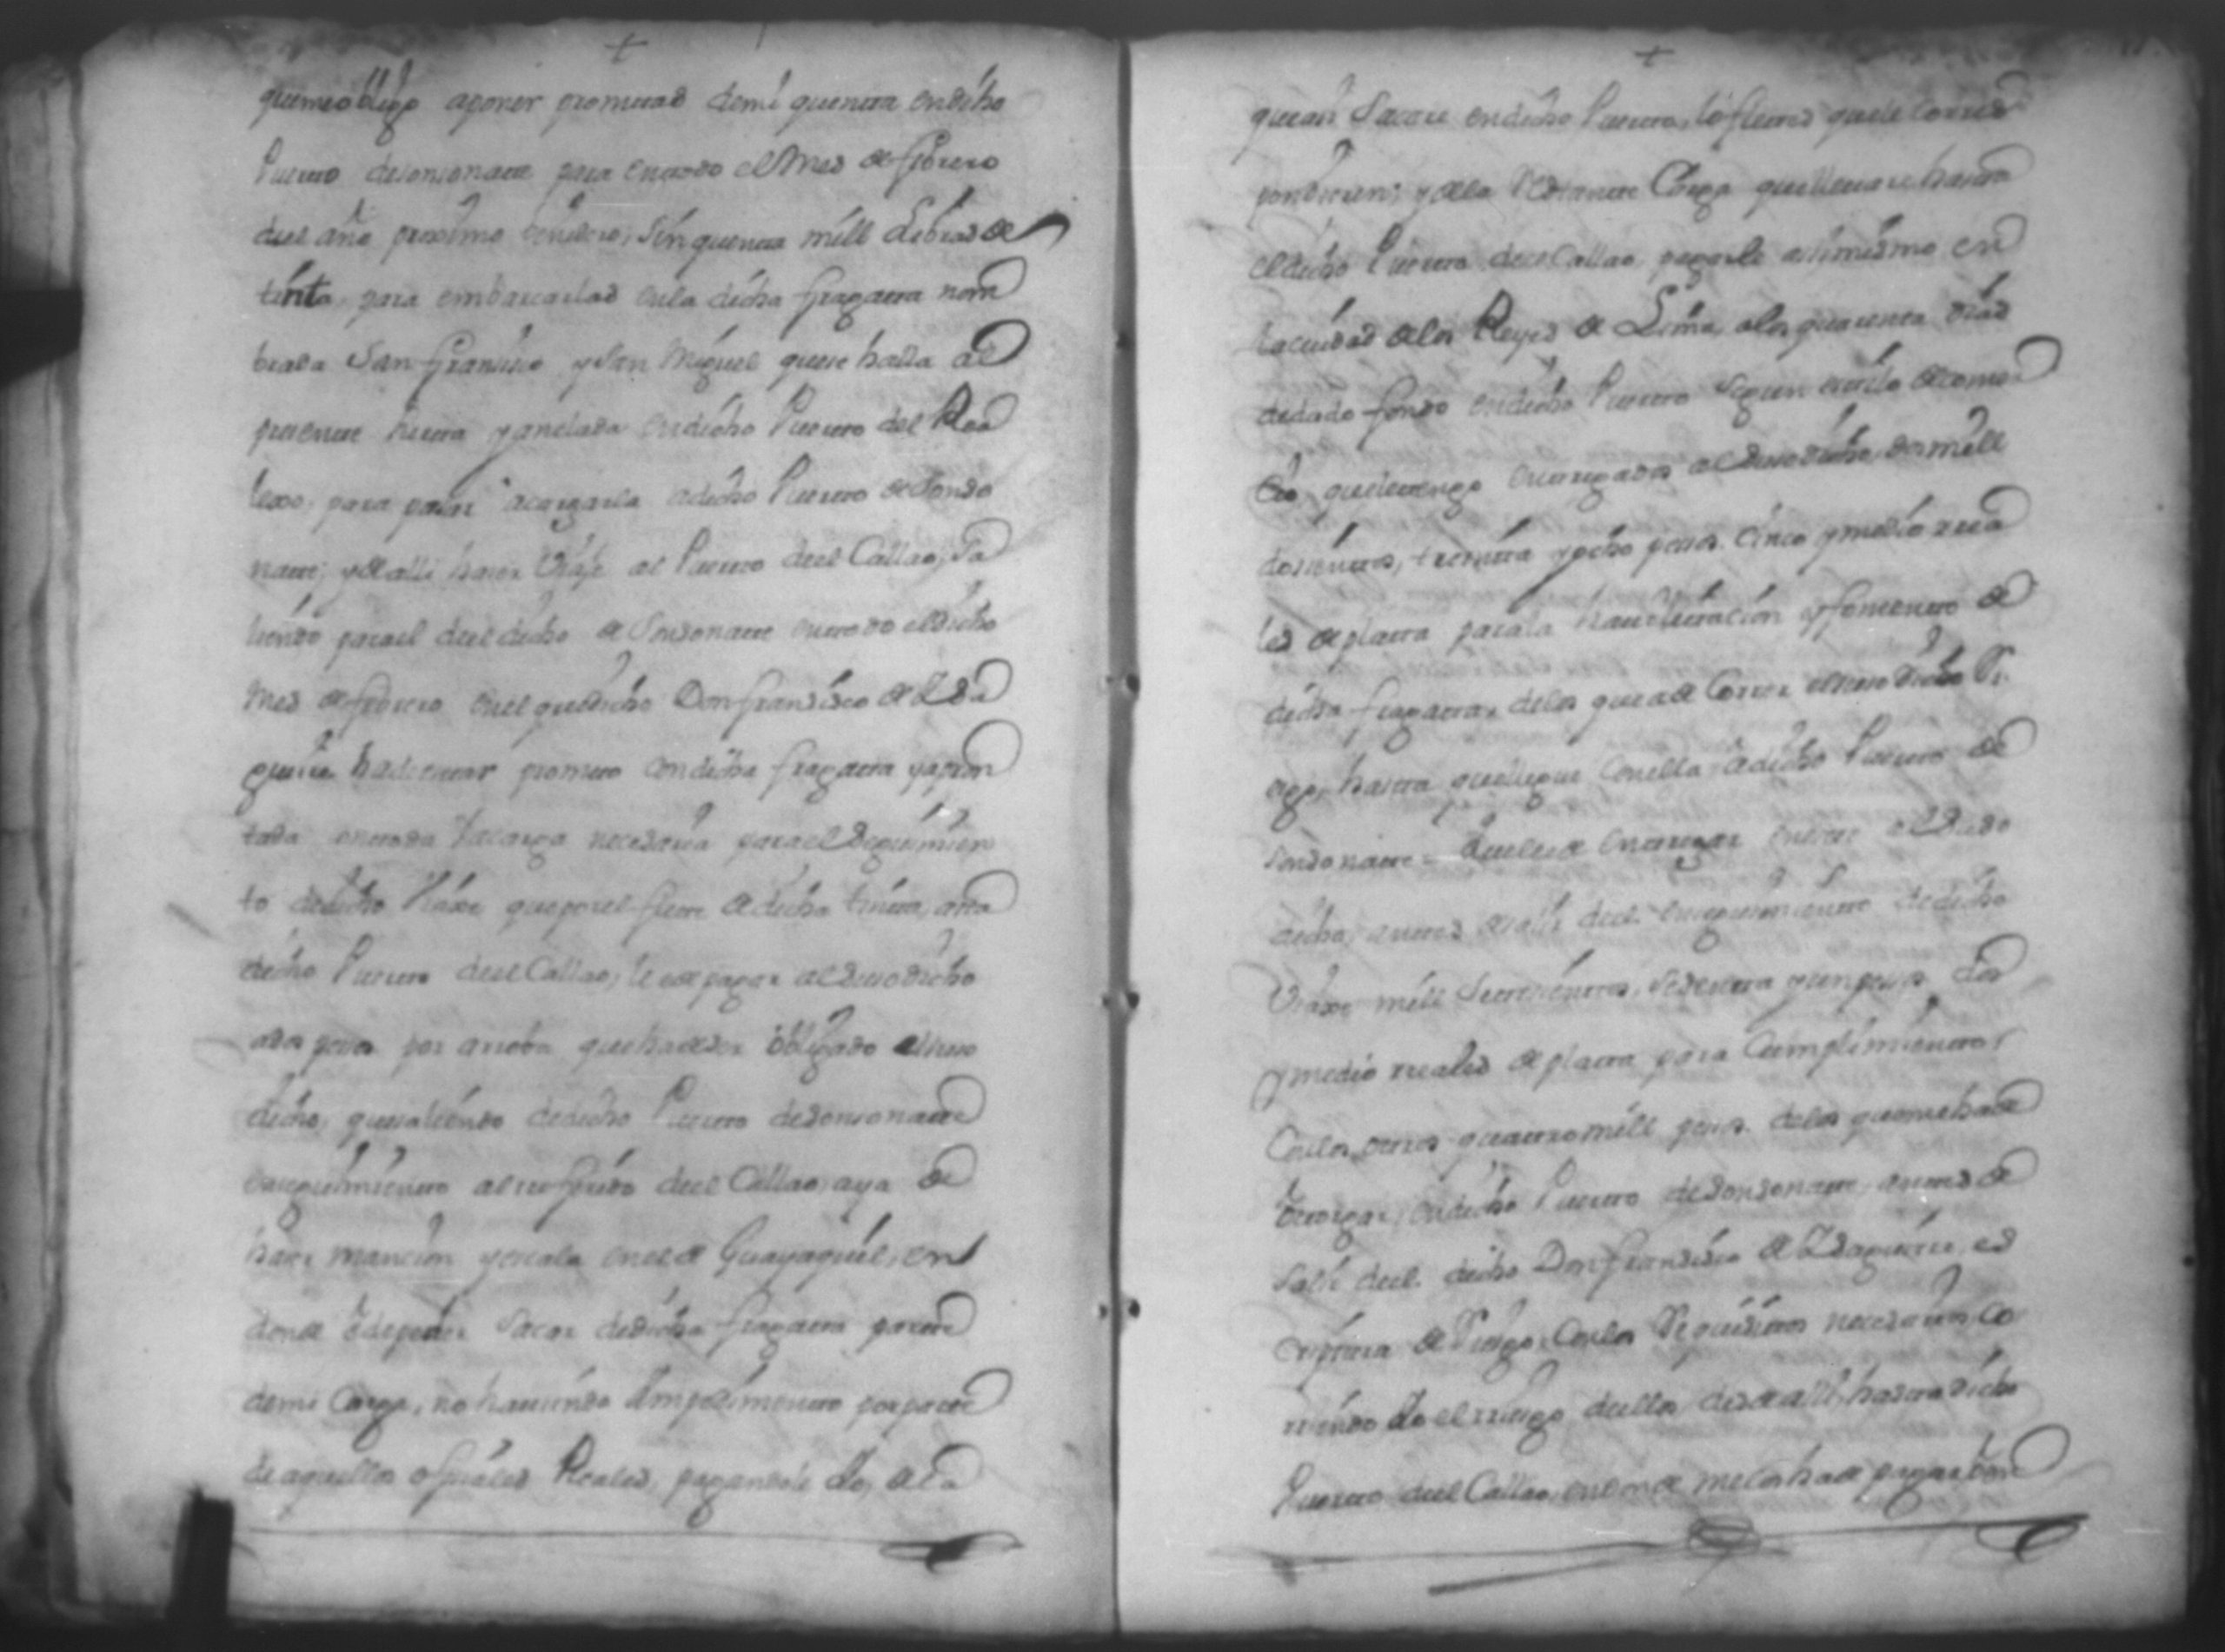 +
que me obligo a poner promptas de mi quenta en dicho
Puerto de sonsonate para entrado el Mes de febrero
deel año proximo benidero, Sinquenta mill Libras de
tinta, para embarcarlas en la dicha fragatta nom
brada San francisco y San Miguel que se halla al
presente surta y anclada en dicho Puerto del Rea
lexo, para pasar a cargarla a dicho Puerto de Sonso
nate; y de alli hacer Viaje al Puerto deel Callao, Sa
liendo para el deel dicho de Sonsonate entrado el dicho
Mes de febrero en el que dicho Don francisco de Ysa
guirre ha de estar prompto con dicha fragatta y apron
tada en toda la carga necesaria para el Seguimien
to de dicho Viaxe, que por el flete de dicha tinta, asta
dicho Puerto deel Callao, le e de pagar al suso dicho
a dos pesos por arroba que ha de ser obligado el suso
dicho, que saliendo de dicho Puerto de sonsonate
en seguimiento al referido deel Callao aya de
hacer mancion y escala en el de Guayaquil, en
donde e de poder Sacar de dicha fragatta parte
de mi Carga, no haviendo Ympedimento por parte
de aquellos ofisiales Reales, pagandole Yo, de la
+
que assi Sacare en dicho Puerto, los fletes que le corres
pondieren; y de la Restante Carga que llevare hasta
el dicho Puerto deel Callao, pagarle assimismo en
la ciudad de los Reyes de Lima, a los quarenta dias
de dado fondo en dicho Puerto Segun estilo de comer
cio, que le tengo entregados al suso dicho, dos mill
dosientos, treinta y ocho pesos, Cinco y medio rea
les de platta para la havilitacion y fomento de
dicha fragatta, de los que a de Correr el suso dicho Ri
esgo, hasta que llegue con ella a dicho Puerto de
Sonsonate. Que le e de entregar en este al Suso
dicho, antes de salir deel en seguimiento de dicho
Viaxe mill Settesientos, Sesenta y un pesos dos
y medio reales de platta para Cumplimiento
Con los otros quattro mill pesos, de los que me ha de
otorgar, en dicho Puerto de Sonsonate, antes de
Salir deel, dicho Don francisco de Ysaguirre, es
criptura de Riesgo, Con los Requisitos necesarios, co
rriendo Yo el riesgo de ellos, desde alli, hasta dicho
Puerto deel Callao, en donde me los ha de pagar, con